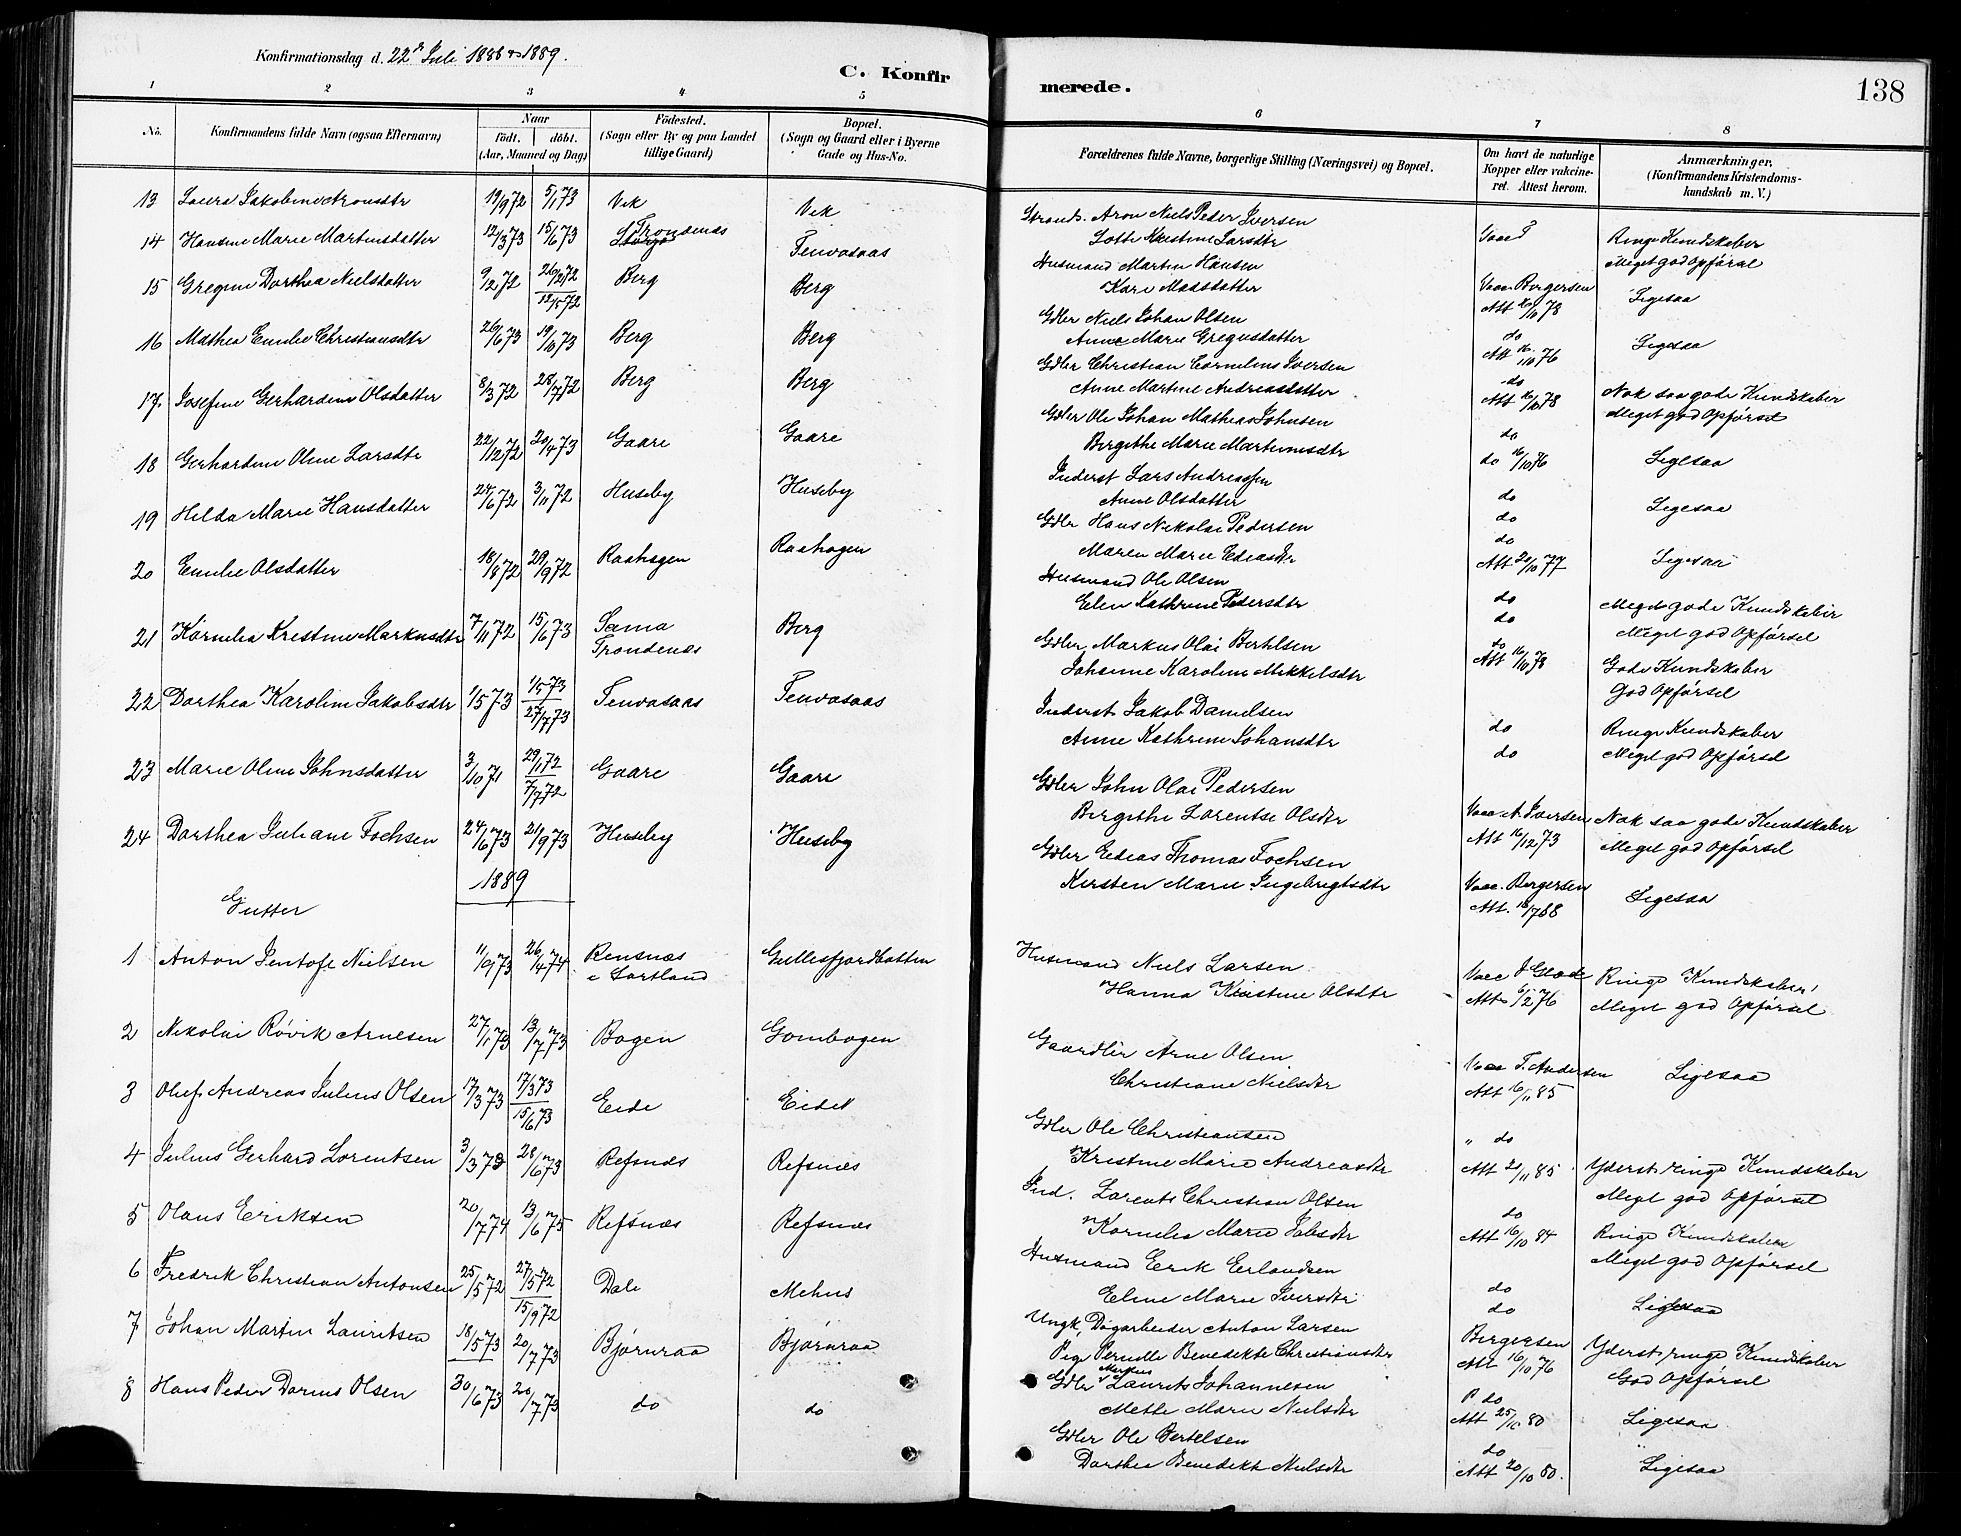 Konfirmationsdag d. 22de Juli 1888 & 1889.
C. Konfirmerede.
138
1 2 3 4 5 6 7 8
No.
Konfirmandens fulde Navn (ogsaa Efternavn)
Naar
født. døbt.
(Aar, Maaned og Dag)
Fødested.
(Sogn eller By og paa Landet
tillige Gaard)
Bopæl.
(Sogn og Gaard eller i Byerne
Gade og Hus-No.
Forældrenes fulde Navne, borgerlige Stilling (Næringsvei) og Bopæl.
Om havt de naturlige
Kopper eller vakcine-
ret. Attest herom.
Anmærkninger.
(Konfirmandens Kristendoms-
kundskab m. V.)
13 Laura Jakobine Aronsdtr 19/9 72 5/1 73 Vik Vik
Strands. Aron Niels Peder Iversen
Lotte Kristine Larsdtr
Ringe Kundskaber
Meget god Opførsel
14 Hansine Marie Martinsdatter 12/3 73 15/6 73 Trondenæs Tenvasaas
Husmand Martin Hansen
Kari Madsdatter
Vacc. Bergersen
Att 16/10 78
Ligesaa
15 Gregine Dorthea Nielsdatter 9/2 72 26/2 72 12/5 72 Berg Berg
Gdbr Niels Johan Olsen
Anne Marie Gregusdatter
do
Att 16/10 76
Ligesaa
16 Mathea Emilie Christiansdtr 26/6 73 19/10 73 Berg Berg
Gdbr Christian Cornelius Iversen
Anne Martine Andreasdatter
do
Att 16/10 78
Nok saa gode Kundskaber
Meget god Opførsel
17. Josefine Gerhardine Olsdatter 8/3 72 28/7 72 Berg Berg
Gdbr Ole Johan Mathias Johnsen
Bergithe Marie Martinusdtr
do
do 16/10 76
Ligesaa
18 Gerhardine Oline Larsdtr 22/12 72 20/4 73 Gaare Gaare
Inderst Lars Andreassen
Anne Olsdatter
do
do
Ligesaa
19 Hilda Marie Hansdatter 24/6 72 3/11 72 Huseby Huseby
Gdbr Hans Nikolai Pedersen
Maren Marie Edeasdtr
do
Att 20/10 77
Ligesaa
20 Emilie Olsdatter 18/8 72 29/9 72 Raahagen Raahagen
Husmand Ole Olsen
Elen Kathrine Pedersdtr
do
do
Meget gode Kundskaber
Meget god Opførsel
21 Kornelia Kristine Markusdtr 7/11 72 15/6 73 Sama
Trondenæs Berg
Gdbr Markus Olai Berthsen
Johanne Karoline Mikkelsdtr
do
Att 16/10 78
Gode Kundskaber
God Opførsel
22 Dorthea Karoline Jakobsdtr 1/5 73 1/5 73 27/7 73 Tenvasaas Tenvasaas
Inderst Jakob Danielsen
Anne Kathrine Johansdtr
do
do
Ringe Kundskaber
Meget god Opførsel
23 Marie Oline Johnsdatter 3/10 71 29/1 72 7/7 72 Gaare Gaare
Gdbr John Olai Pedersen
Bergithe Lorentse Olsdtr
Vacc A. Iversen
Att 16/12 73
Nok saa gode Kundskaber
Meget god Opførsel
24 Dorthea Juliane Fochsen 24/6 73 21/9 73 Huseby Huseby
Gdbr Edeas Thomas Fochsen
Kirsten Marie Ingebrigtsdtr
Vacc. Bergersen
Att.
Ligesaa
1889
Gutter
1 Anton Jentofe Nielsen 11/9 73 26/4 74 Rensnæs
i Sortland Gullesfjordbotten
Husmand Niels Larsen
Hanna Kristine Olsdtr
Att 6/2 76
Ringe Kundskaber
Meget god Opførsel
2 Nikolai Røvik Arnesen 27/1 73 13/7 73 Bogen Gombogen
Gaardbr Arne Olsen
Christiane Nielsdtr
Vacc T. Andersen
Att 16/11 85
Ligesaa
3 Oluf Andreas Julius Olsen 17/3 73 17/3 73 15/6 73 Eide Eidet
Gdbr Ole Christiansen
Kristine Marie Andreasdtr
" do
Att 20/11 85
Yderst ringe Kundskaber
Meget god Opførsel
4 Julius Gerhard Lorentsen 3/3 73 28/6 73 Refsnæs Refsnæs
Ind. Lorents Christian Olsen
Kornelia Marie Jobsdtr
do
Att 16/10 84
Ringe Kundskaber
Meget god Opførsel
5 Olaus Eriksen 20/7 74 13/6 75 Refsnæs Refsnæs
Husmand Erik Erlandsen
Eline Marie Iversdtr
do
do
Ligesaa
6 Fredrik Christian Antonsen 25/5 72 27/5 72 15/9 72 Dale Mehus
Ungk, Dagarbeider Anton Larsen
Pige Pernille Benedikte Christiansdtr
Bergersen
Att 16/10 76
Yderst ringe Kundskaber
God Opførsel
7 Johan Martin Lauritsen 18/5 73 20/7 73 Bjørnraa Bjørnraa
Gdbr Laurits Johannesen
Mette Marie Nielsdtr
do
Att 25/10 80
Ligesaa
8 Hans Peder Darius Olsen 30/6 73 20/7 73 do do
Gdbr Ole Bertelsen
Dorthea Benedikte Nielsdtr
do
Att 20/10 80.
Ligesaa